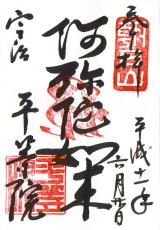 奉拝
平成十一年
六月廿日
阿弥陀如来
宇治
平等院